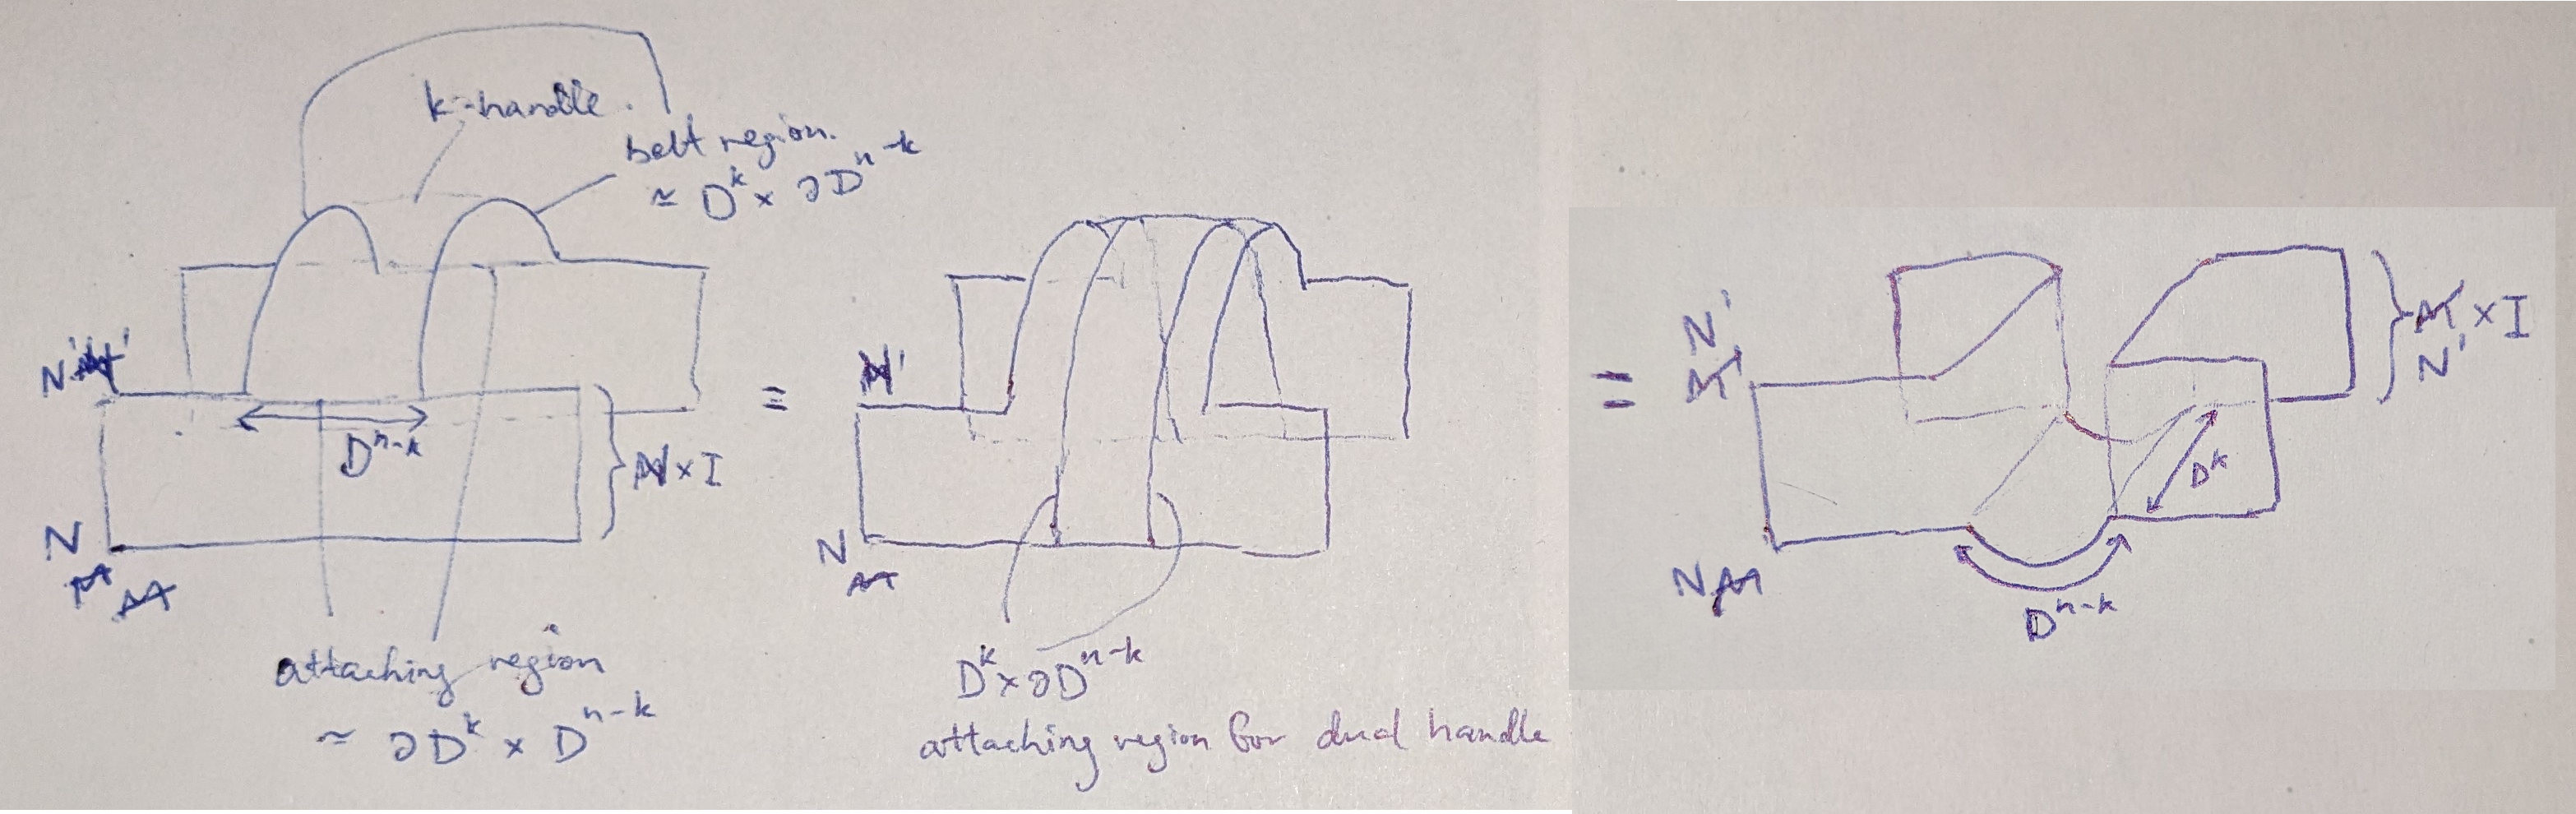 k-handle.
belt region.
≃ D^k × ∂D^{n-k}
N'
D^{n-k}
N × I
N
attaching region
≃ ∂D^k × D^{n-k}
=
N'
N
D^k × ∂D^{n-k}
attaching region for dual handle
=
N'
× I
N'
D^k
N
D^{n-k}